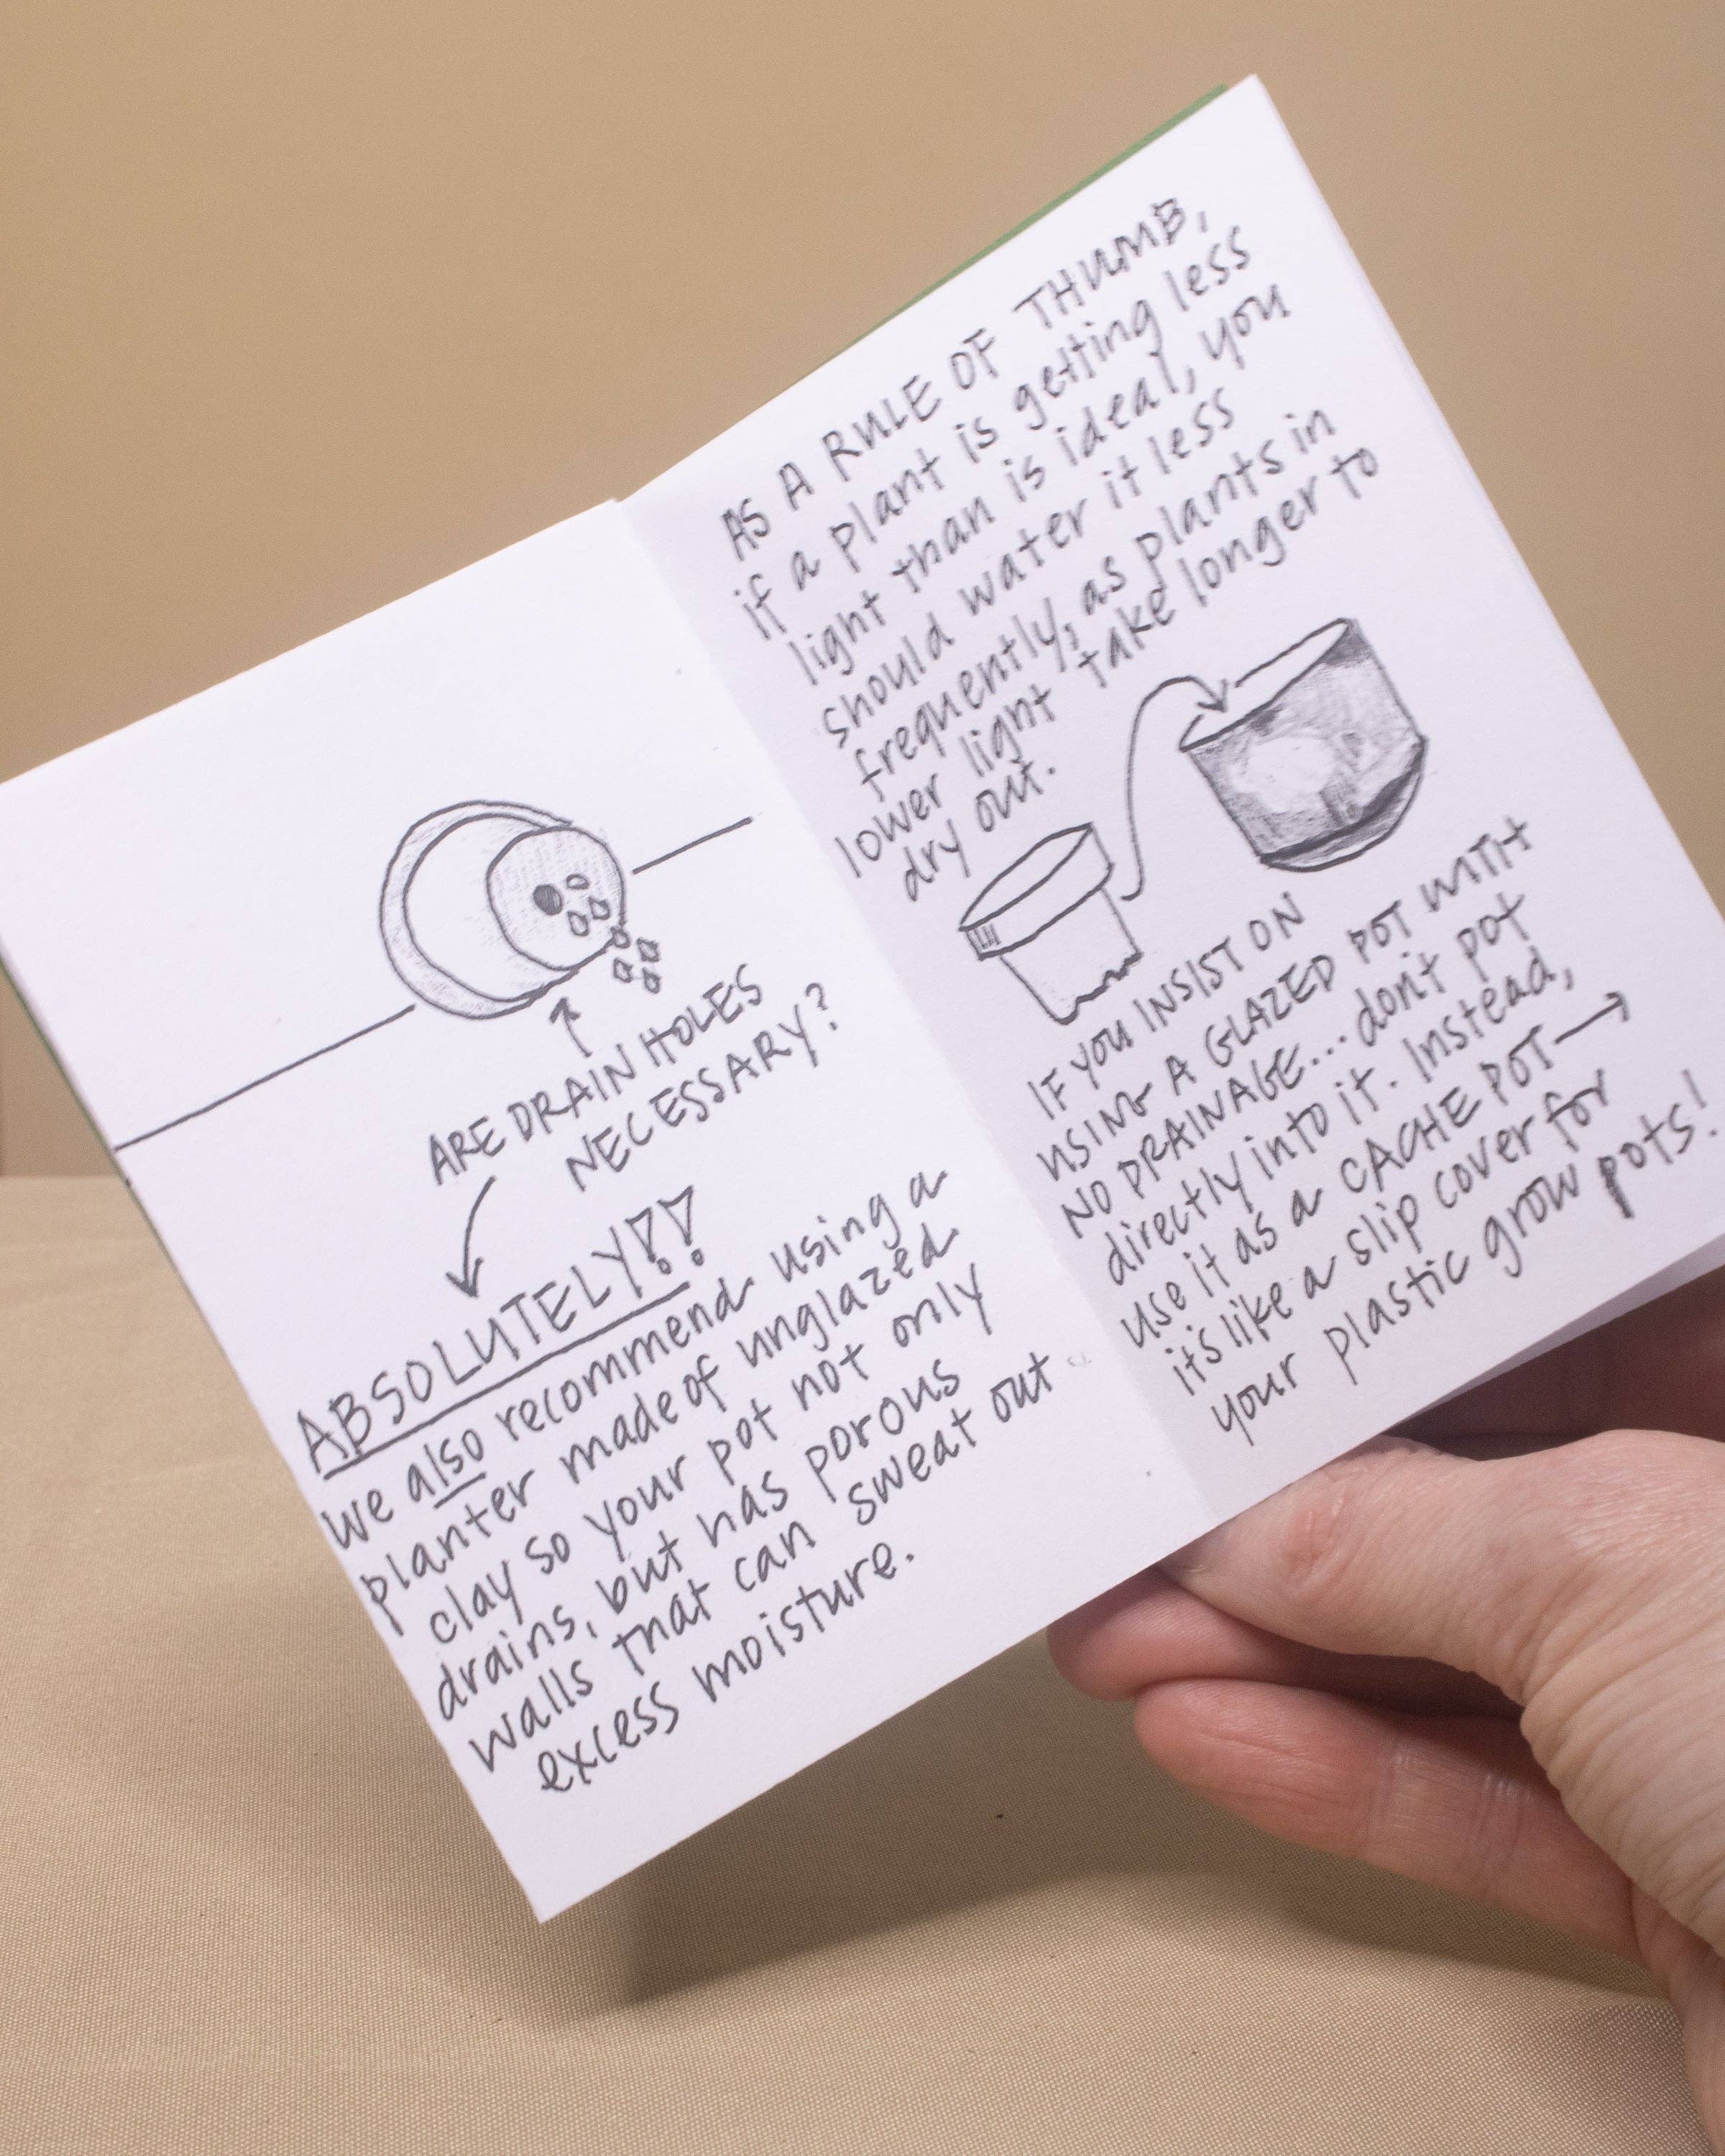 ARE DRAIN HOLES
NECESSARY?
ABSOLUTELY!!
We also recommend using a
planter made of unglazed
clay so your pot not only
drains, but has porous
walls that can sweat out
excess moisture.
AS A RULE OF THUMB,
if a plant is getting less
light than is ideal, you
should water it less
frequently, as plants in
lower light take longer to
dry out.
IF YOU INSIST ON
USING A GLAZED POT WITH
NO DRAINAGE... don't pot
directly into it. Instead,
use it as a CACHE POT →
it's like a slip cover for
your plastic grow pots!